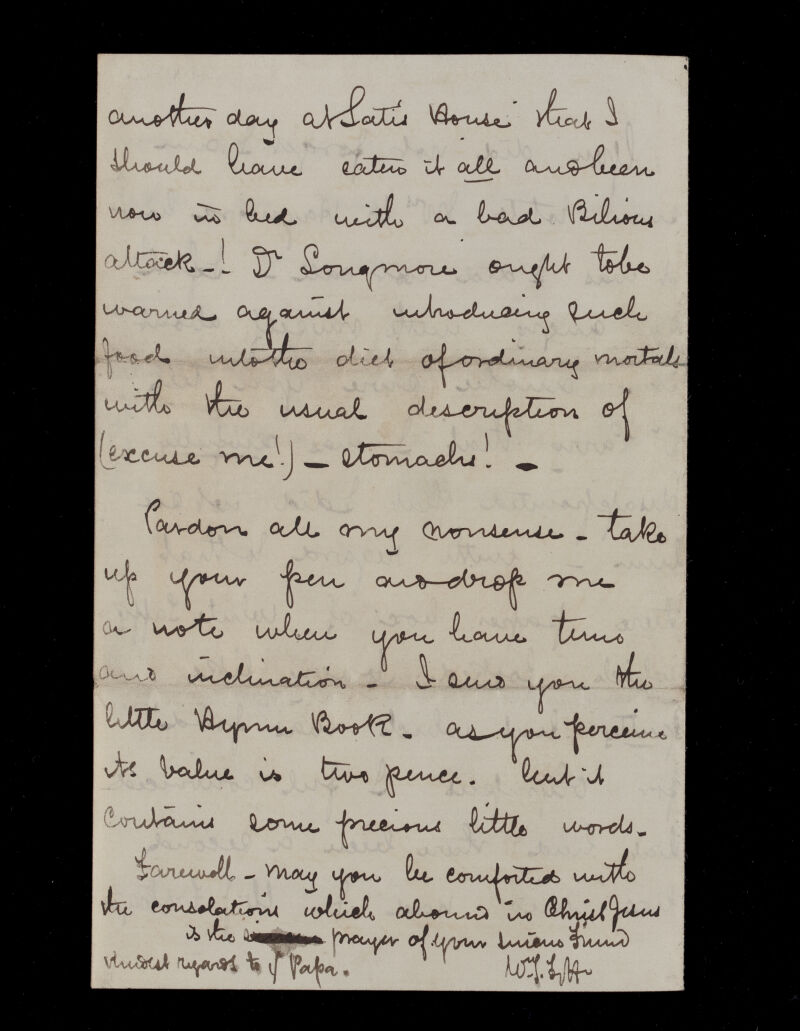 another day at Satis House that I
should have eaten it all and been
now in bed with a bad Bilious
attack-! Dr Longmore ought to be
warned against introducing such
food into the diet of ordinary mortals
with the usual description of
(excuse me!) - stomachs! -
Pardon all my nonsense - take
up your pen and drop me
a note when you have time
and inclination - I send you the
little Hymn Book - as you perceive
its value is two pence. but it
contains some precious little words -
Farewell - may you be comforted with
the consolations which abound in Christ Jesus
is the prayer of your sincere Friend
kindest regards to yr Papa.